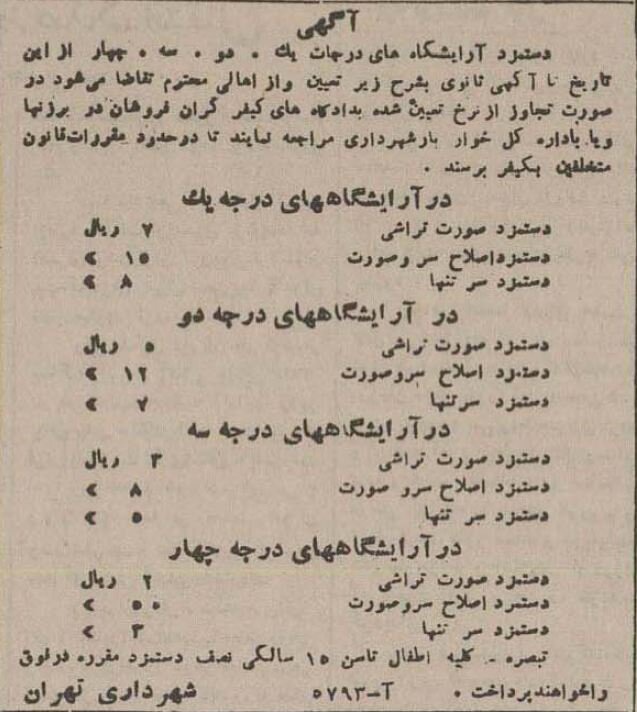 آگهی
دستمزد آرایشگاه های درجات یك ، دو ، سه ، چهار از این
تاریخ تا آگهی ثانوی بشرح زیر تعیین و از اهالی محترم تقاضا می‌شود در
صورت تجاوز از نرخ تعیین شده بدادگاه های کیفر گران فروشان در برزنها
و یا باداره کل خوار بار شهرداری مراجعه نمایند تا در حدود مقررات قانون
متخلفین بکیفر برسند .
در آرایشگاههای درجه یك
دستمزد صورت تراشی ۷ ریال
دستمزد اصلاح سر و صورت ۱۵ »
دستمزد سر تنها ۸ »
در آرایشگاههای درجه دو
دستمزد صورت تراشی ۵ ریال
دستمزد اصلاح سر و صورت ۱۲ »
دستمزد سر تنها ۷ »
در آرایشگاههای درجه سه
دستمزد صورت تراشی ۳ ریال
دستمزد اصلاح سر و صورت ۸ »
دستمزد سر تنها ۵ »
در آرایشگاههای درجه چهار
دستمزد صورت تراشی ۲ ریال
دستمزد اصلاح سر و صورت »
دستمزد سر تنها ۳ »
تبصره - کلیه اطفال تا سن ۱۵ سالگی نصف دستمزد مقرره در فوق
را خواهند پرداخت . آ-۵۷۹۳ شهرداری تهران